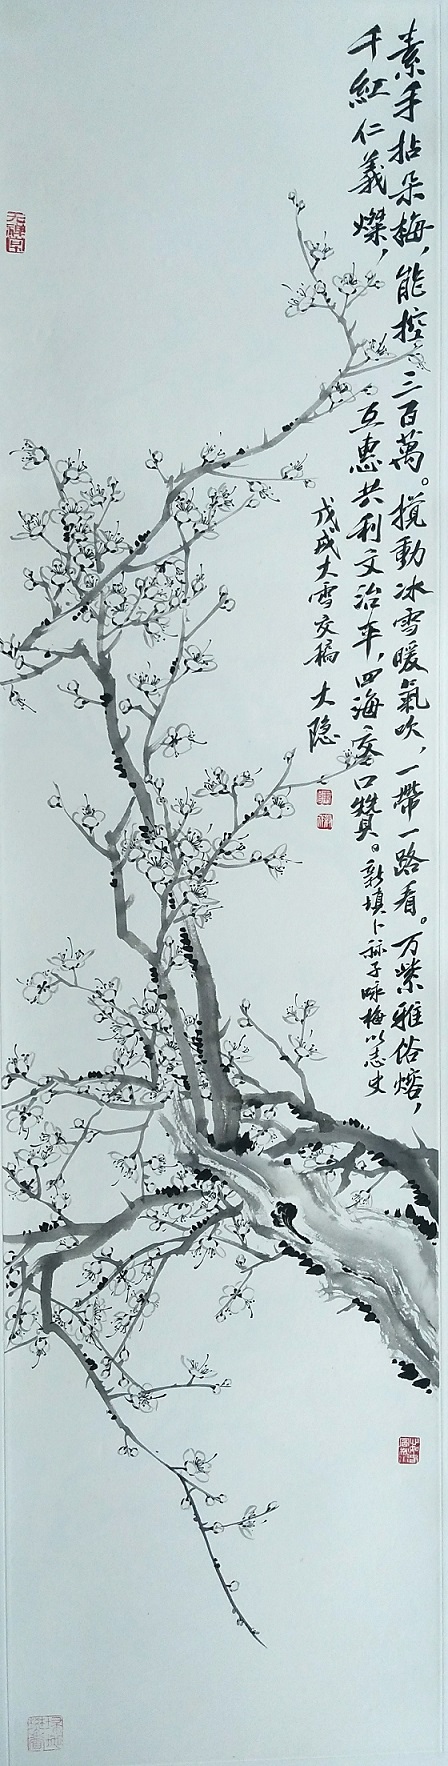 素手拈朵梅，能控三百萬。攪動冰雪暖氣吹，一帶一路看。万紫雅俗熔，
千紅仁義燦，互惠共利文治平，四海交口贊。新填卜祘子咏梅以志史
戊戌大雪交稿 大隐